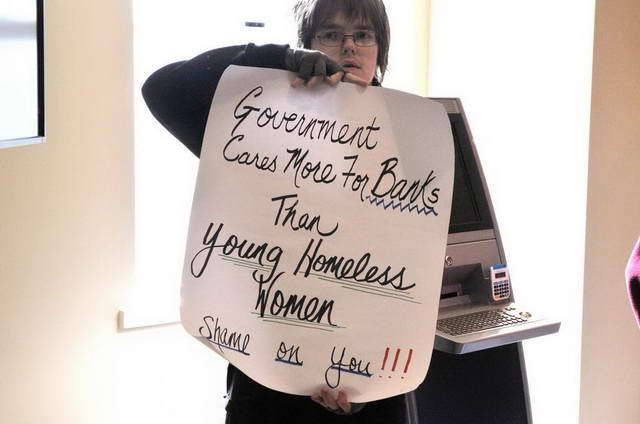 Government
Cares More For Banks
Than
Young Homeless
Women
Shame on you!!!